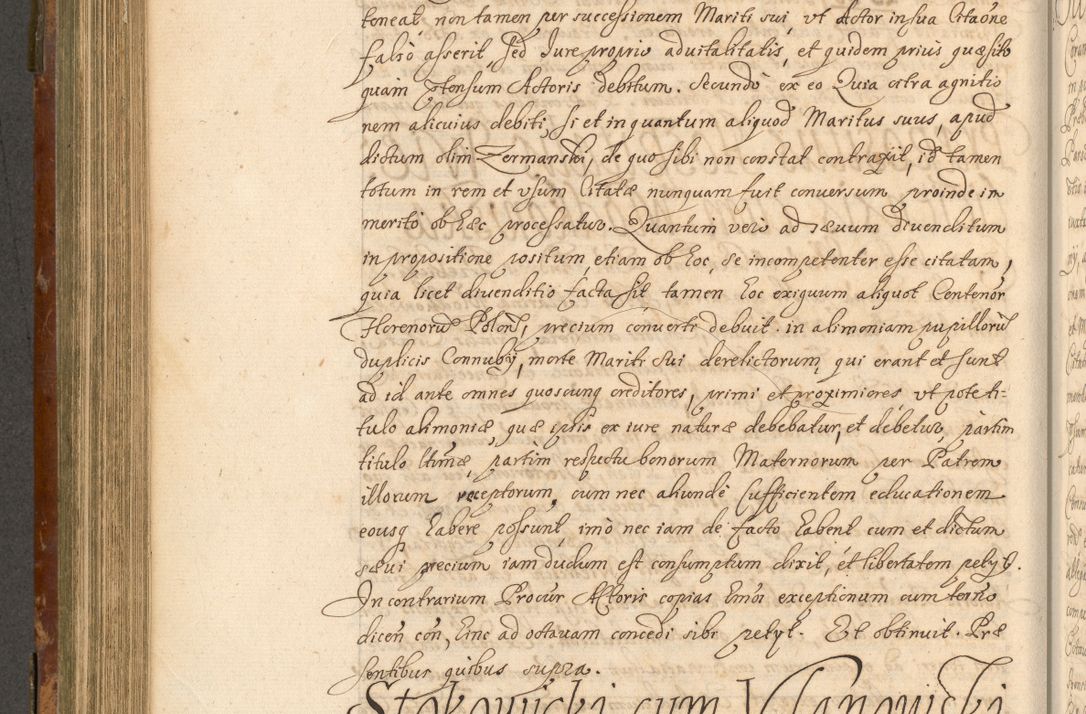 teneat, non tamen per successionem Mariti sui, vt Actor in sua Citaõne
falso asserit, sed Jure proprio aduitalitatis, et quidem prius quæsito
quam Actoris debitum. Secundo ex eo Quia citra agnitio
nem alicuius debiti, si et inquantum aliquod Maritus suus, apud
dictum olim Zermanski, de quo sibi non constat contraxit, id tamen
totum in rem et vsum Citatæ nunquam fuit conuersum, proinde im
merito ob hæc processatur. Quantum vero ad sæuum diuenditum
in propositione positum, etiam ob hoc, se incompetenter esse citatam,
quia licet diuenditio facta sit tamen hoc exiguum aliquot Centenor
Florenorũ Polon, precium conuerti debuit in alimoniam pupillorũ
duplicis Connubij, morte Mariti sui derelictorum, qui erant et sunt
ad id ante omnes quoscunq creditores, primi et proximiores vt pote ti-
tulo alimoniæ, quæ ipsis ex iure naturæ debebatur, et debetur, partim
titulo ltimæ partim respectu bonorum Maternorum per Patrem
illorum receptorum, cum nec aliunde sufficientem educationem
eousq habere possunt, imo nec iam de facto habent cum et dictum
sæui precium iam dudum est consumptum dixit, et libertatem petyt.
In contrarium Procur Actoris copias hmõi exceptionum cum termo
dicen con, hinc ad octauam concedi sibi petyt. Et obtinuit. Præ
sentibus quibus supra.
Stokowiicki cum Vlanowiski